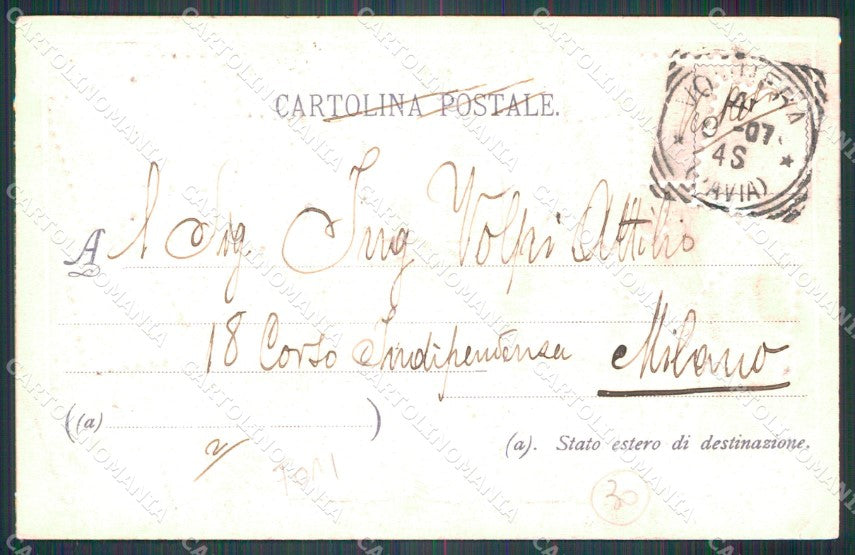 CARTOLINA POSTALE.
VOGHERA
-07
4S
(PAVIA)
A l Sig. Ing Volpi Attilio
18 Corso Indipendenza
Milano
(a)
(a). Stato estero di destinazione.
30
CARTOLINOMANIA